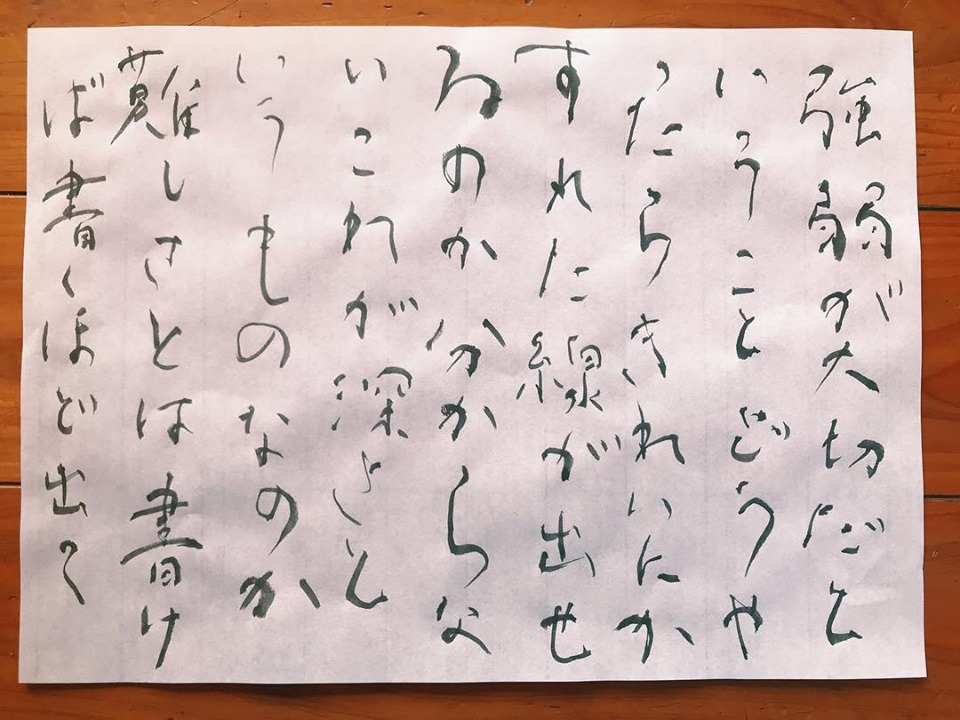 強弱が大切だと
いうことどうや
ったらきれいにか
すれた線が出せ
るのか分からな
いこれが深さと
いうものなのか
難しさとは書け
ば書くほど出て